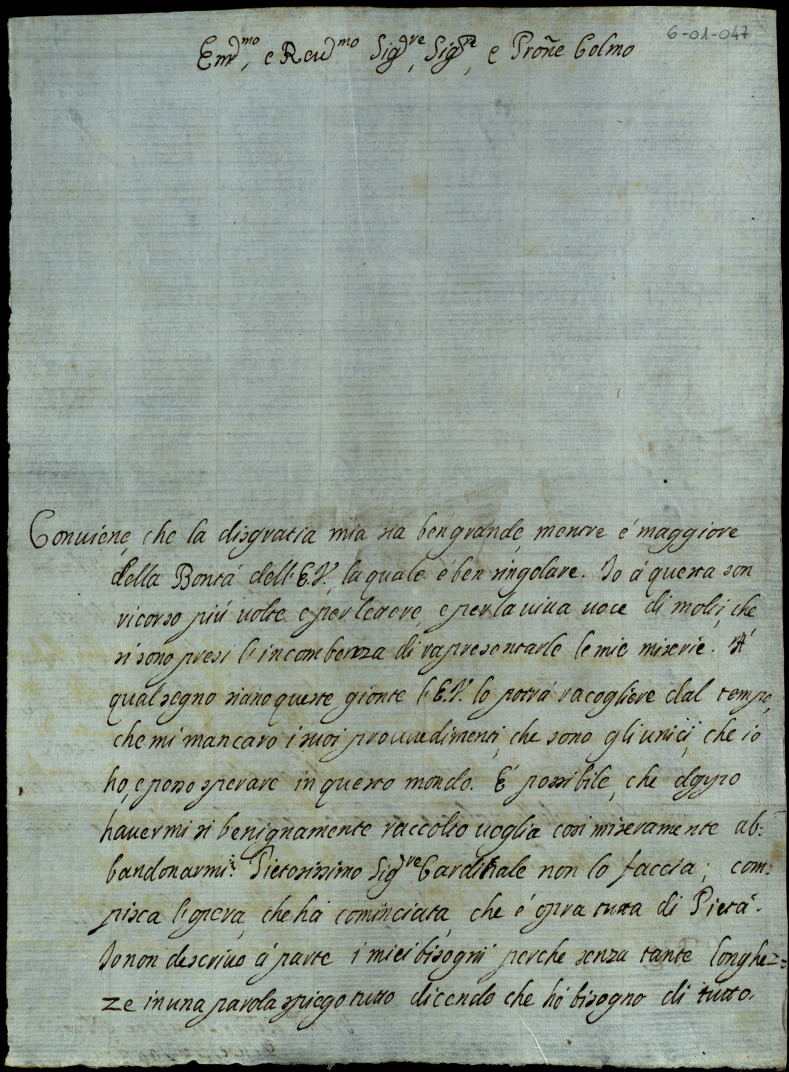 6-01-047
Em.mo, e Reu.mo Sig.re, Sig.re, e Prône Colmo
Conuiene, che la disgratia mia sia ben grande, mentre é maggiore
della Bontá dell'E.V., la quale é ben singolare. Io á questa son
ricorso piú uolte e per lettere, e per la uiua uoce di molti, che
si sono presi l'incombenza di rapresentarle le mie miserie. Á
qual segno siano queste gionte l'E.V. lo potrá racogliere dal tempo,
che mi mancaro i suoi prouuedimenti, che sono gli unici, che io
ho, e posso sperare in questo mondo. É possibile, che doppo
hauermi si benignamente raccolto uoglia cosi miseramente ab:
bandonarmi? Pietosissimo Sig.re Cardinale non lo faccia; com:
pisca l'opera, che há cominciata, che é opra tutta di Pietá.
Io non descriuo á parte i miei bisogni perche senza tante longhez=
ze in una parola spiego tutto dicendo che hó bisogno di tutto.